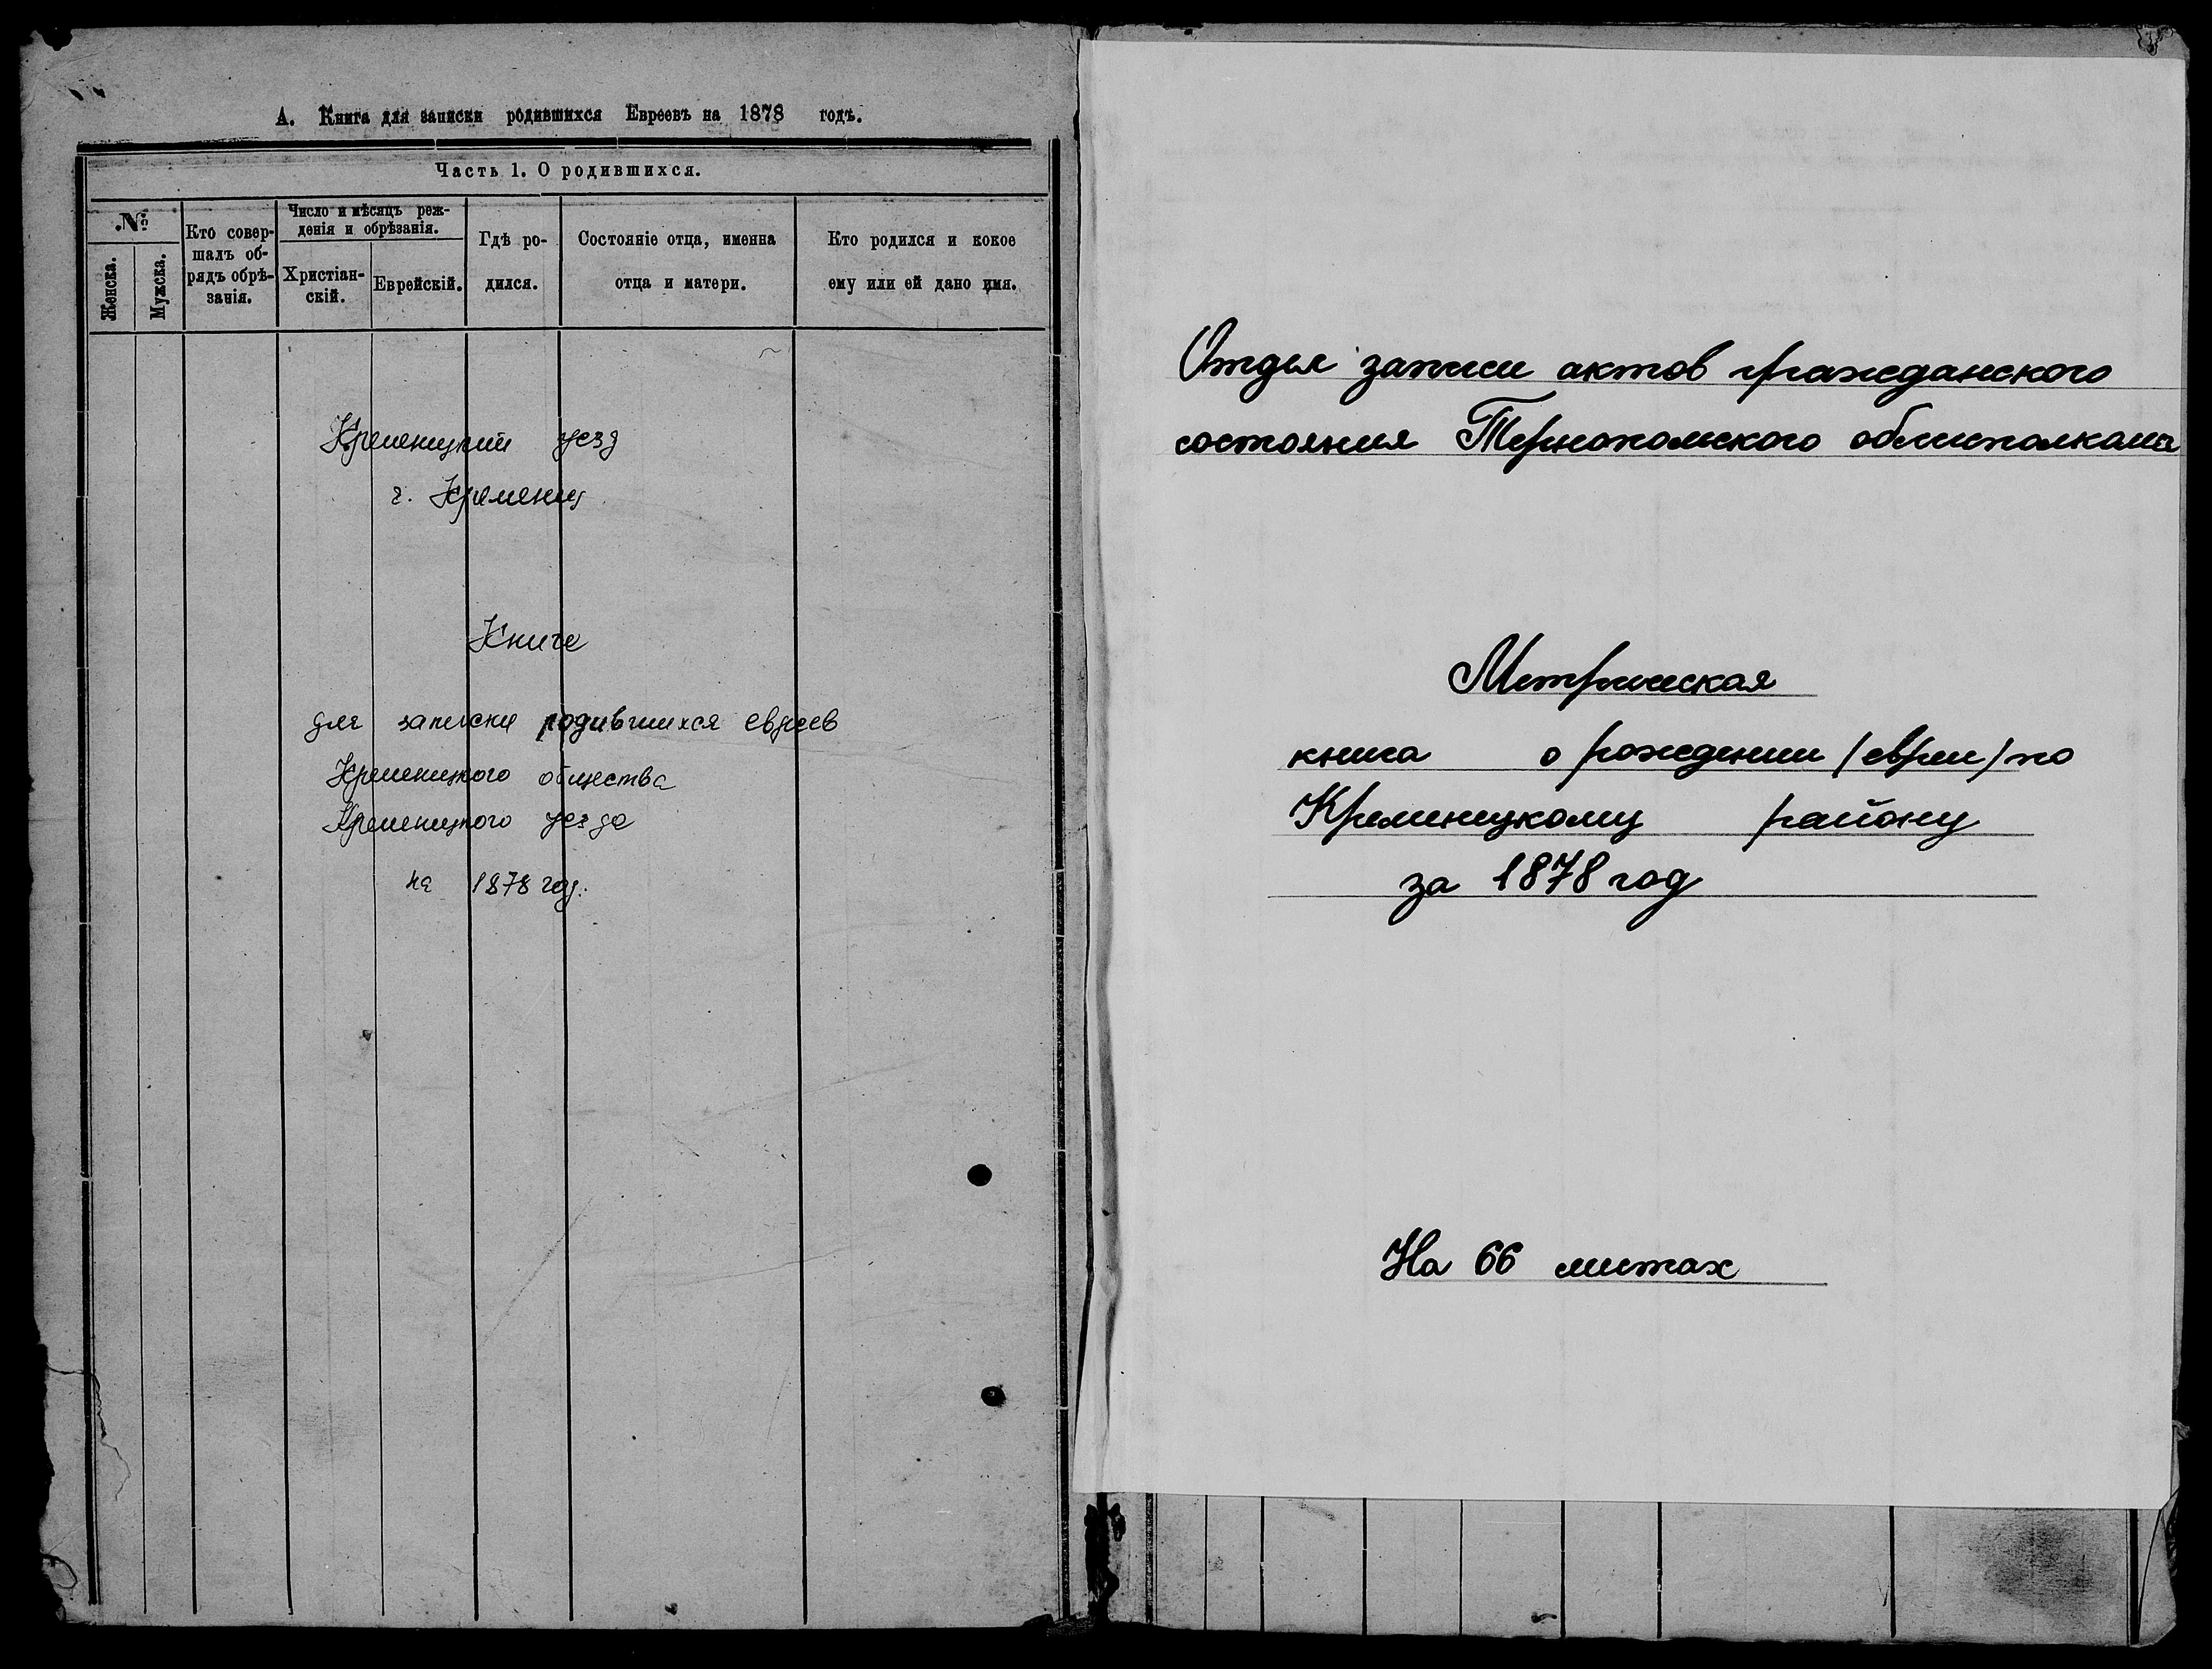 А. Книга для записки родившихся Евреевъ на 1878 годъ.
Часть 1. О родившихся.
№
Женска.
Мужска.
Кто совер-
шалъ об-
рядъ обрѣ-
занія.
Число и мѣсяцъ реж-
денія и обрѣзанія.
Христіан-
скій.
Еврейскій.
Гдѣ ро-
дился.
Состояніе отца, именна
отца и матери.
Кто родился и кокое
ему или ей дано имя.
Кременецкий уезд
г. Кременец
Книга
для записки родившихся евреев
Кременецкого общества
Кременецкого уезда
на 1878 год.
Отдел записи актов гражданского
состояния Тернопольского облисполкома
Метрическая
книга о рождении (евреи) по
Кременецкому району
за 1878 год
На 66 листах